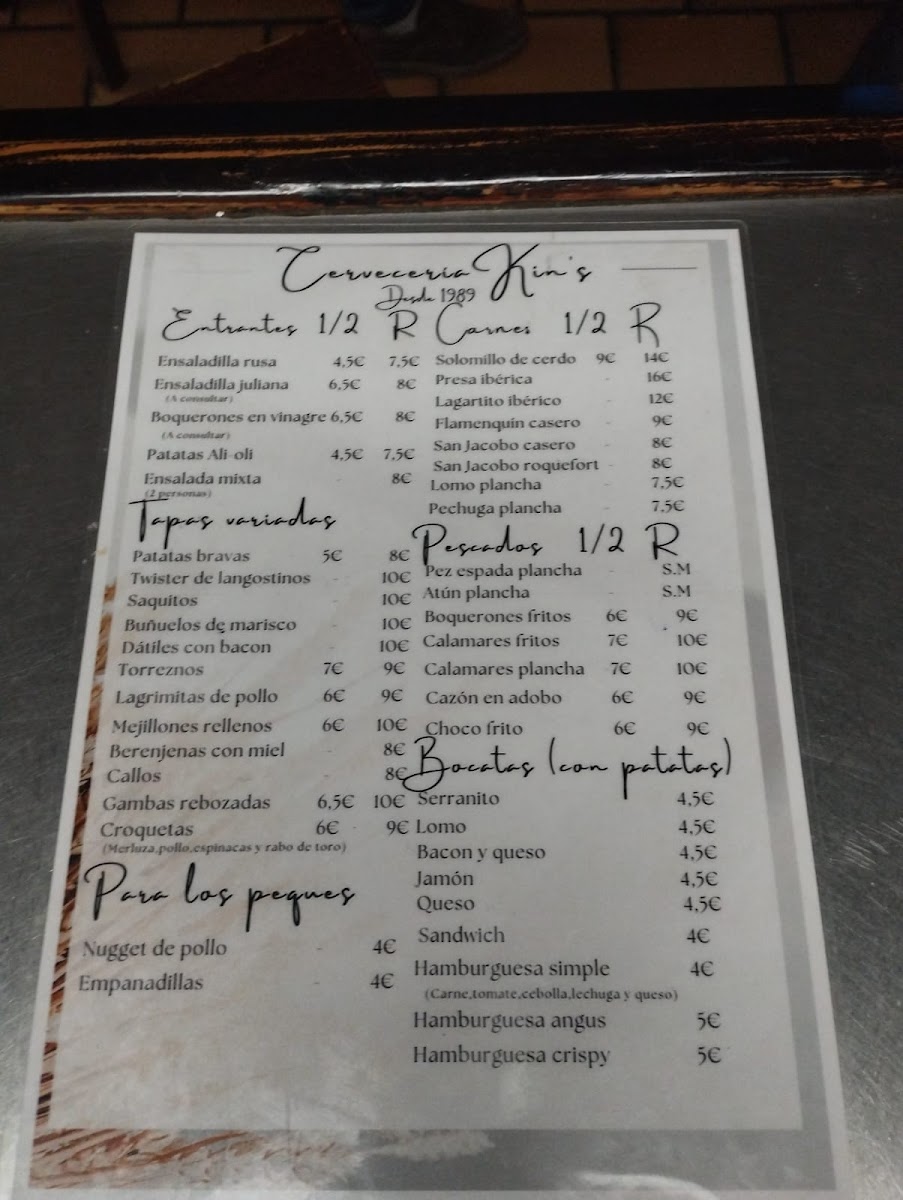 Cervecería Kin's
Desde 1989
Entrantes 1/2 R
Ensaladilla rusa 4,5€ 7,5€
Ensaladilla juliana 6,5€ 8€
(A consultar)
Boquerones en vinagre 6,5€ 8€
(A consultar)
Patatas Ali-oli 4,5€ 7,5€
Ensalada mixta 8€
(2 personas)
Tapas variadas
Patatas bravas 5€ 8€
Twister de langostinos - 10€
Saquitos - 10€
Buñuelos de marisco - 10€
Dátiles con bacon - 10€
Torreznos 7€ 9€
Lagrimitas de pollo 6€ 9€
Mejillones rellenos 6€ 10€
Berenjenas con miel - 8€
Callos - 8€
Gambas rebozadas 6,5€ 10€
Croquetas 6€ 9€
(Merluza,pollo,espinacas y rabo de toro)
Para los peques
Nugget de pollo - 4€
Empanadillas - 4€
Carnes 1/2 R
Solomillo de cerdo 9€ 14€
Presa ibérica - 16€
Lagartito ibérico - 12€
Flamenquín casero - 9€
San Jacobo casero - 8€
San Jacobo roquefort - 8€
Lomo plancha - 7,5€
Pechuga plancha - 7,5€
Pescados 1/2 R
Pez espada plancha - S.M
Atún plancha - S.M
Boquerones fritos 6€ 9€
Calamares fritos 7€ 10€
Calamares plancha 7€ 10€
Cazón en adobo 6€ 9€
Choco frito 6€ 9€
Bocatas (con patatas)
Serranito 4,5€
Lomo 4,5€
Bacon y queso 4,5€
Jamón 4,5€
Queso 4,5€
Sandwich 4€
Hamburguesa simple 4€
(Carne,tomate,cebolla,lechuga y queso)
Hamburguesa angus 5€
Hamburguesa crispy 5€